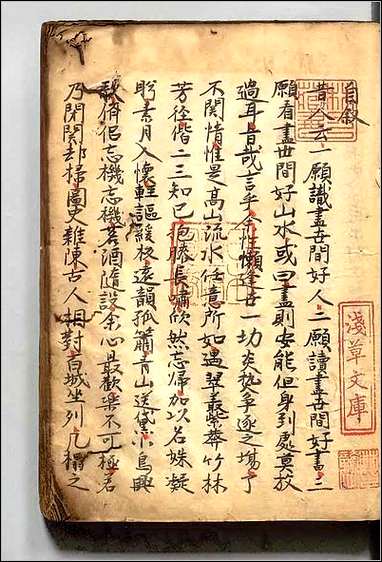 自叙
昔人云一願識盡世間好人二願讀盡世間好書三
願看盡世間好山水或曰盡則安能但身到處莫放
過耳旨哉言乎余性懶逢世一切炎熱爭逐之場了
不關情惟是高山流水任意所如遇翠叢紫莽竹林
芳徑偕二三知己抱膝長嘯欣然忘歸加以名姝凝
盻素月入懷輕謳緩板遠韻孤簫青山送黛小鳥興
歌儕侶忘機忘機茗酒隨設余心最歡樂不可極若
乃閉関却掃圖史雜陳古人相對百城坐列几榻之
淺草文庫